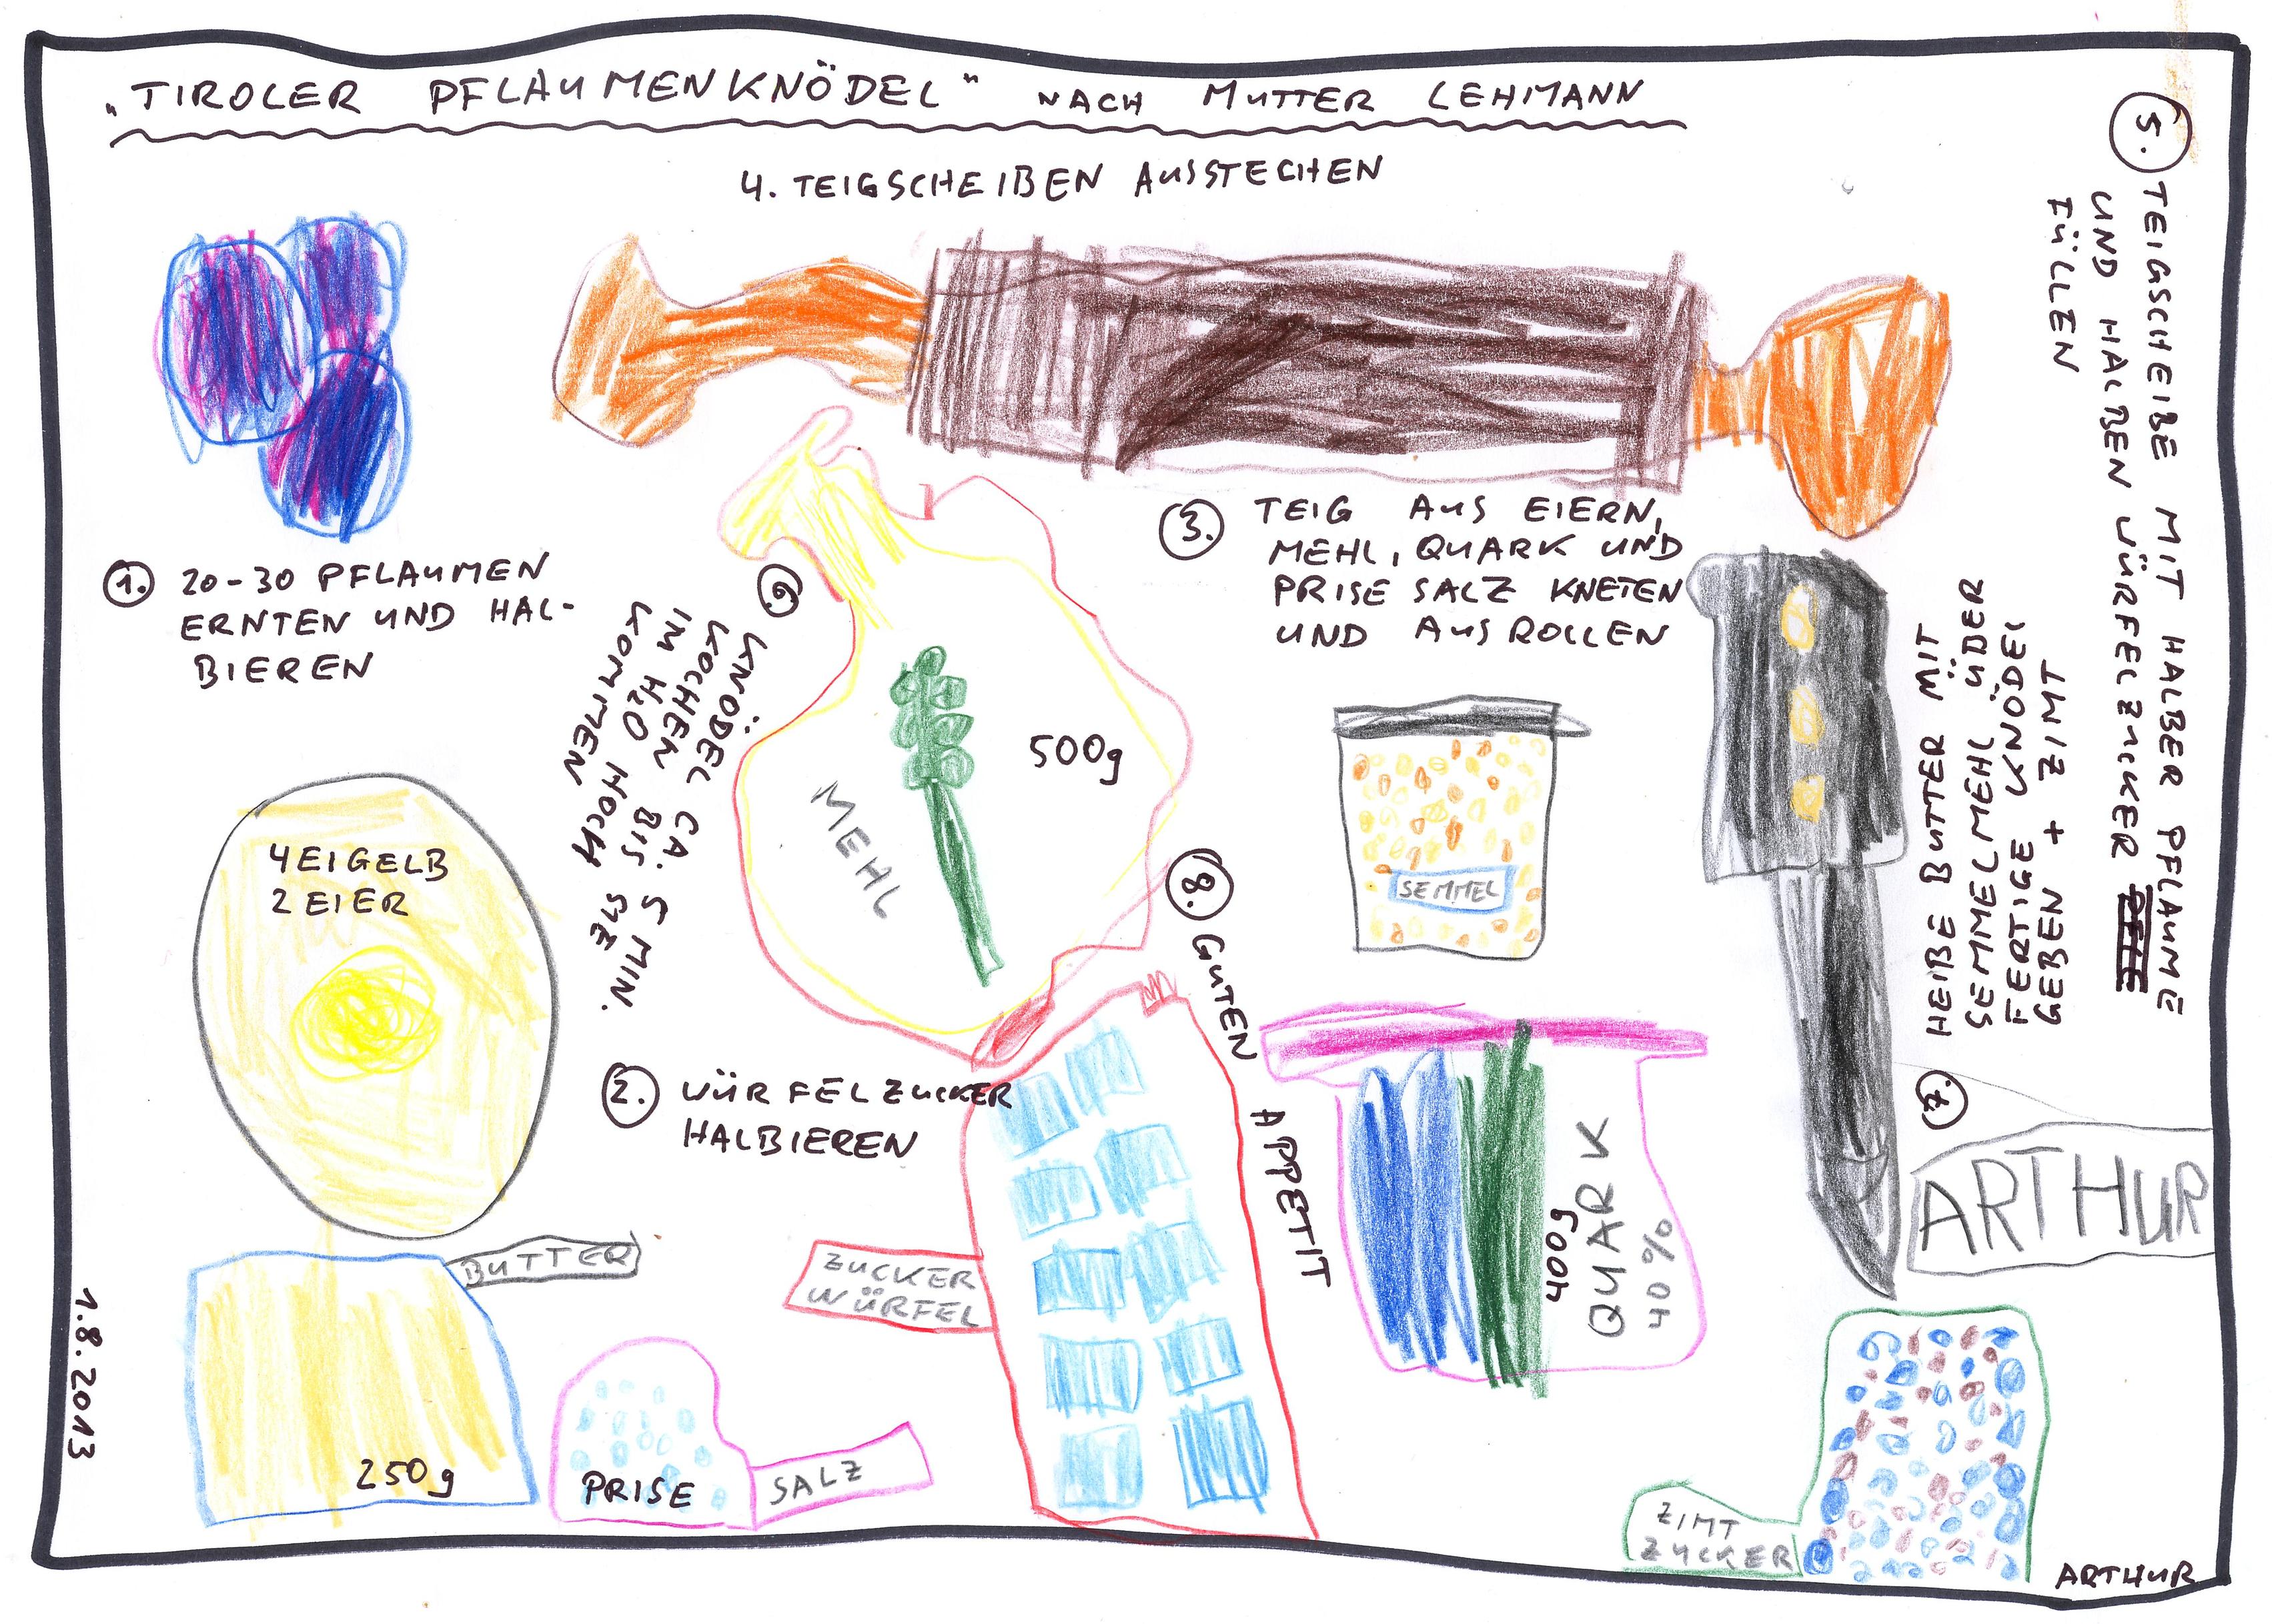 „TIROLER PFLAUMENKNÖDEL“ NACH MUTTER LEHMANN
4. TEIGSCHEIBEN AUSSTECHEN
1. 20-30 PFLAUMEN
ERNTEN UND HAL-
BIEREN
3. TEIG AUS EIERN,
MEHL, QUARK UND
PRISE SALZ KNETEN
UND AUSROLLEN
5. TEIGSCHEIBE MIT HALBER PFLAUME
UND HALBEN WÜRFELZUCKER
FÜLLEN
6. KNÖDEL CA. 5 MIN.
KOCHEN BIS SIE
IM H2O HOCH
KOMMEN
500g
MEHL
SEMMEL
4 EIGELB
2 EIER
2. WÜRFELZUCKER
HALBIEREN
8. GUTEN APPETIT
7. HEIßE BUTTER MIT
SEMMELMEHL ÜBER
FERTIGE KNÖDEL
GEBEN + ZIMT
400g
QUARK
40%
ARTHUR
BUTTER
250g
ZUCKER
WÜRFEL
PRISE
SALZ
ZIMT
ZUCKER
1.8.2013
ARTHUR